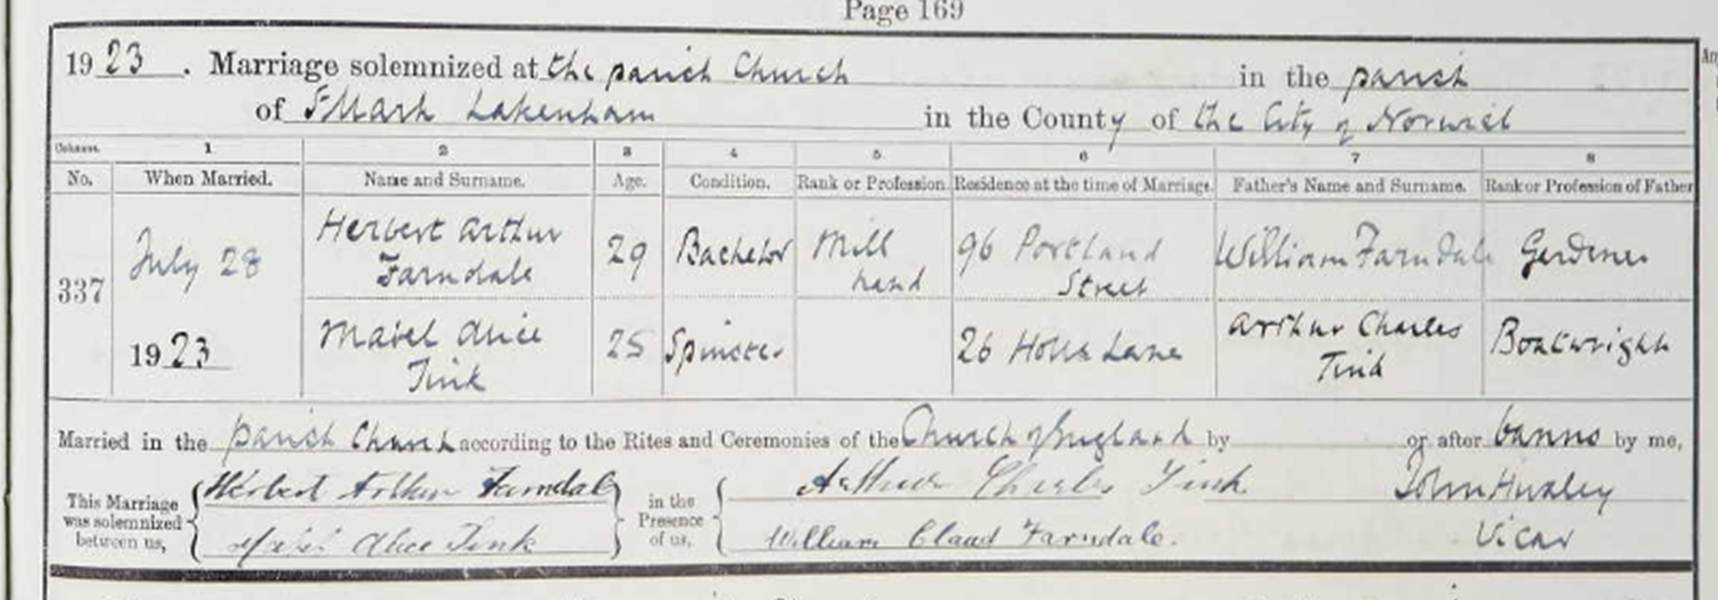 Page 169
1923. Marriage solemnized at the parish Church in the parish
of St Mark Lakenham in the County of the City of Norwich
Columns. 1 2 3 4 5 6 7 8
No. When Married. Name and Surname. Age. Condition. Rank or Profession. Residence at the time of Marriage. Father's Name and Surname. Rank or Profession of Father
337 July 28 1923
Herbert Arthur Farndale 29 Bachelor Mill hand 96 Portland Street William Farndale Gardener
Mabel Alice Tink 25 Spinster 26 Lane Arthur Charles Tink Boatwright
Married in the parish Church according to the Rites and Ceremonies of the Church of England by or after banns by me,
This Marriage was solemnized between us, Herbert Arthur Farndale in the Presence of us, Arthur Charles Tink John Huxley
Mabel Alice Tink William Claud Farndale. Vicar